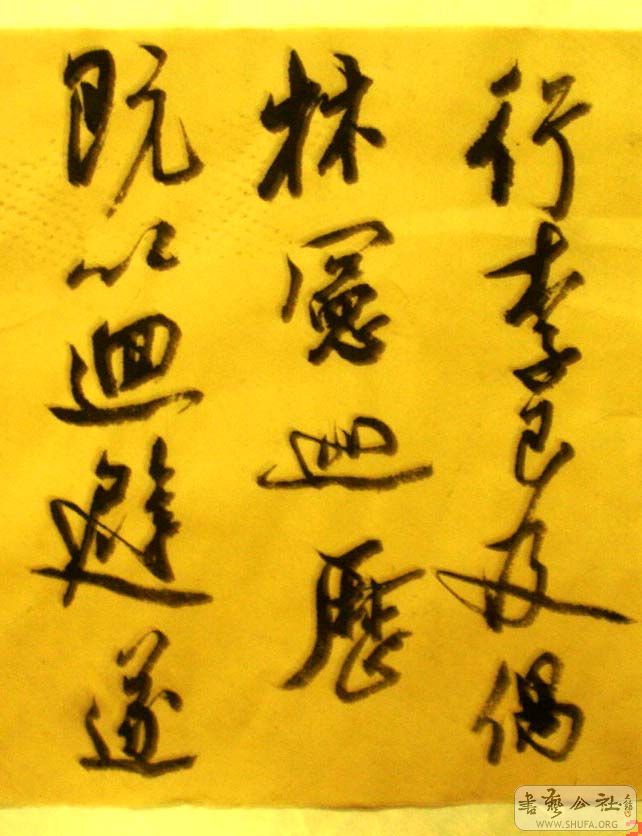 行李已及偶
林憲巡歷
既以迴避遂
書藝公社
WWW.SHUFA.ORG